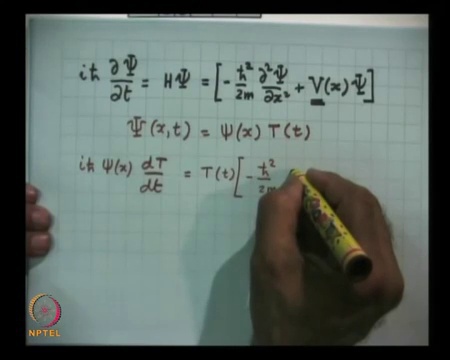 iħ ∂Ψ/∂t = HΨ = [-ħ²/2m ∂²Ψ/∂x² + V(x)Ψ]
Ψ(x,t) = ψ(x) T(t)
iħ ψ(x) dT/dt = T(t)[-ħ²/2m
NPTEL